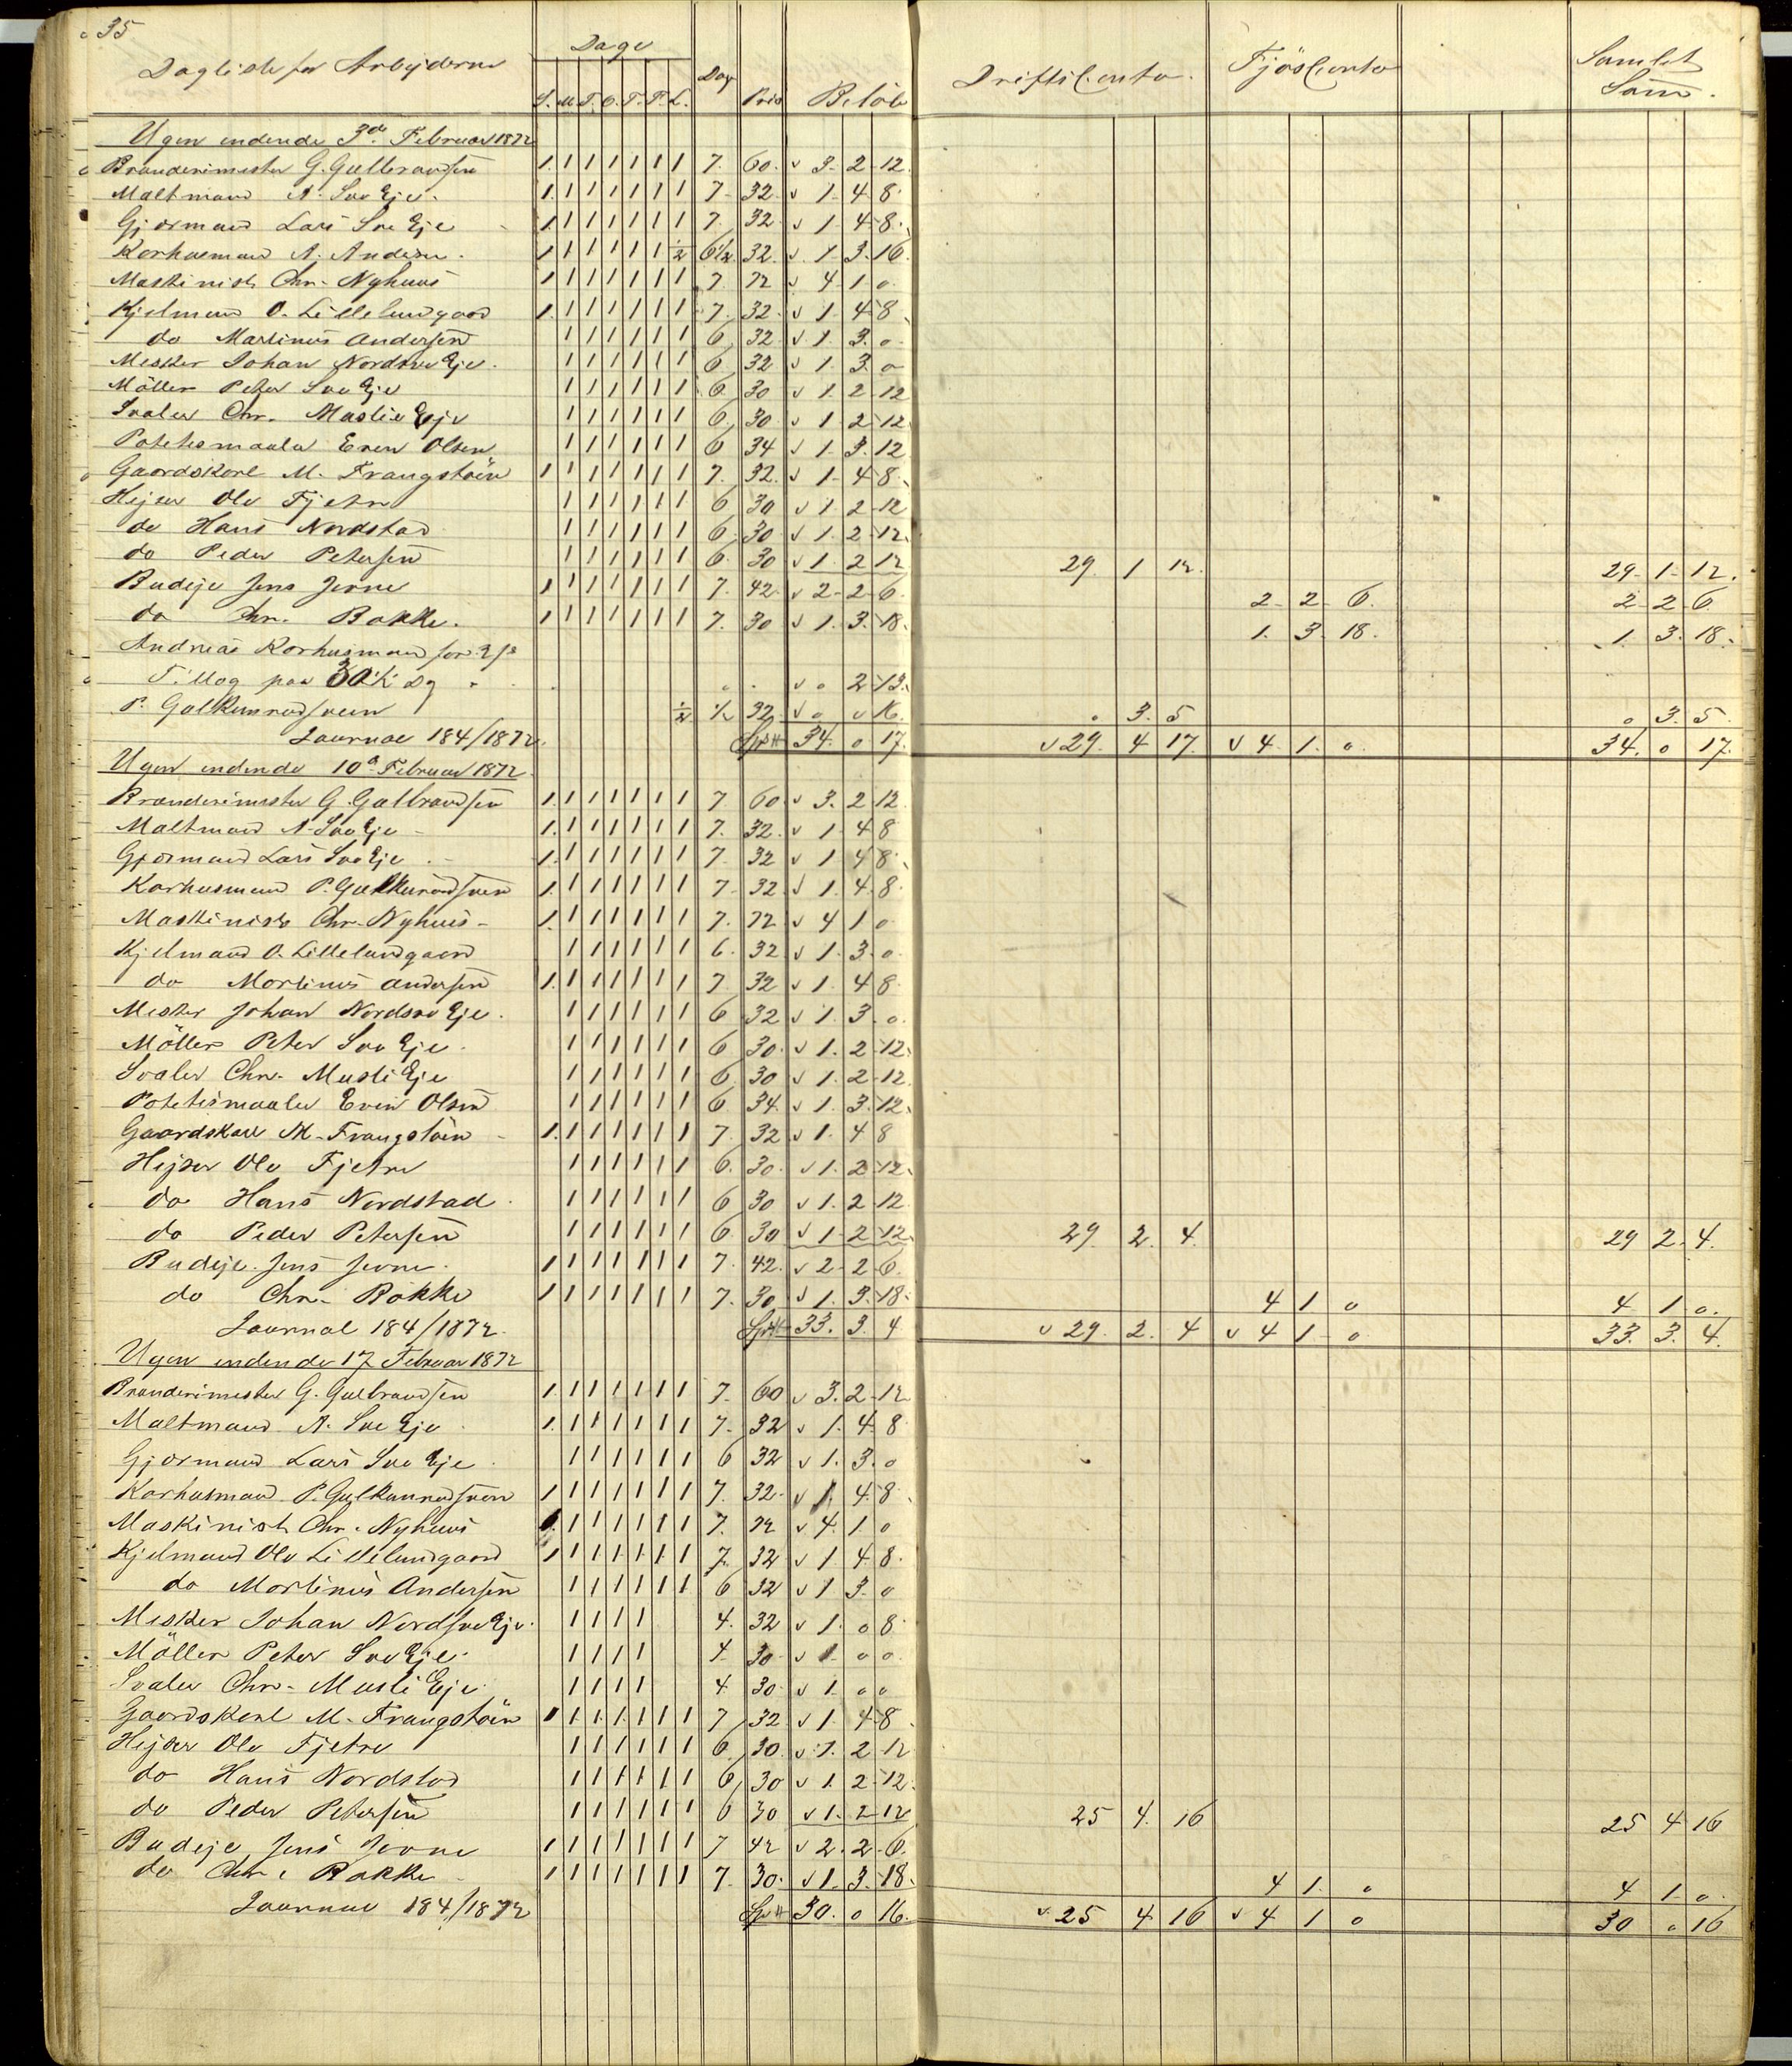 35
Dagliste for Arbejderne Dage Dag Pris Beløb Driftsconto Fjösconto Samlet Sum.
S. M. T. O. T. F. L.
Ugen endende 3de Februar 1872
Brænderimester G. Gulbrandsen 1. 1 1 1 1 1 1 7. 60. v 3. 2. 12.
Maltmand A. Sveeje. 1. 1 1 1 1 1 1 7. 32. v 1. 4. 8.
Gjørmand Lars Sveeje 1. 1 1 1 1 1 1 7. 32. v 1. 4. 8.
Korhusmand A. Andersen. 1 1 1 1 1 1 1/2 6 1/2 32. v 1. 3. 16.
Maskinist Chr. Nyhuus 1 1 1 1 1 1 1 7. 72 v 4. 1. 0.
Kjelmand O. Lillelundgaard 1. 1 1 1 1 1 1 7. 32. v 1. 4. 8.
do Martinus Andersen 1 1 1 1 1 1 6. 32. v 1. 3. 0.
Mesker Johan Nordsveeje. 1 1 1 1 1 1 6. 32 v 1. 3. 0
Möller Peter Sveeje 1 1 1 1 1 1 6. 30 v 1. 2. 12
Svaler Chr. Muslieeje 1 1 1 1 1 1 6. 30 v 1. 2. 12.
Potetesmaaler Even Olsen 1 1 1 1 1 1 6 34 v 1. 3. 12
Gaardskarl M. Frangstöen 1 1 1 1 1 1 1 7. 32. v 1. 4. 8.
Hejser Ole Fjetre 1 1 1 1 1 1 6 30 v 1. 2. 12
do Hans Nordstad 1 1 1 1 1 1 6. 30 v 1. 2. 12.
do Peder Petersen 1 1 1 1 1 1 6. 30 v 1 2 12 29. 1 12. 29. 1. 12.
Budeje Jens Jevne 1 1 1 1 1 1 1 7. 42. v 2. 2. 6. 2. 2. 6. 2. 2. 6.
do Chr. Bakke. 1 1 1 1 1 1 1 7. 30 v 1. 3. 18. 1. 3 18. 1. 3. 18.
Andreas Korhusmand for
Tillæg paa v 0 2. 13.
P. Gulkunrudsveen 1/2 1/2 32. v 0 0 16. 0 3. 5 0 3. 5.
Journal 184/1872. Spd 34. 0 17. v 29. 4 17. v 4. 1. 0. 34. 0 17.
Ugen endende 10de Februar 1872.
Brænderimester G. Gulbrandsen 1. 1 1 1 1 1 1 7 60 v 3. 2 12
Maltmand A. Sveeje 1. 1 1 1 1 1 1 7. 32. v 1. 4 8
Gjørmand Lars Sveeje. 1. 1 1 1 1 1 1 7. 32 v 1. 4 8.
Korhusmand P. Gulkunrudsveen 1. 1 1 1 1 1 1 7. 32. v 1. 4. 8.
Maskinist Chr. Nyhuus 1. 1 1 1 1 1 1 7. 72 v 4 1 0
Kjelmand O. Lillelundgaard 1 1 1 1 1 1 6. 32 v 1. 3. 0.
do Martinus Andersen 1. 1 1 1 1 1 1 7. 32 v 1. 4 8
Mesker Johan Nordsveeje. 1 1 1 1 1 1 6 32 v 1. 3. 0.
Möller Peter Sveeje. 1 1 1 1 1 1 6 30. v 1. 2. 12.
Svaler Chr. Muslieeje 1 1 1 1 1 1 6. 30 v 1. 2. 12.
Potetesmaaler Even Olsen 1 1 1 1 1 1 6. 34. v 1. 3. 12.
Gaardskarl M. Frangstöen 1. 1 1 1 1 1 1 7. 32 v 1. 4 8
Hejser Ole Fjetre 1 1 1 1 1 1 6. 30. v 1. 2. 12.
do Hans Nordstad 1 1 1 1 1 1 6 30 v 1. 2 12
do Peder Petersen 1 1 1 1 1 1 6. 30 v 1. 2. 12. 29. 2. 4. 29 2. 4.
Budeje Jens Jevne. 1 1 1 1 1 1 1 7. 42. v 2. 2. 6.
do Chr. Bakke 1 1 1 1 1 1 1 7. 30 v 1. 3. 18. 4 1 0 4 1 0.
Journal 184/1872. Spd 33. 3. 4 v 29. 2. 4 v 4 1. 0 33. 3. 4.
Ugen endende 17 Februar 1872
Brænderimester G. Gulbrandsen 1. 1 1 1 1 1 1 7. 60 v 3. 2. 12
Maltmand A. Sveeje 1. 1 1 1 1 1 1 7. 32 v 1. 4. 8
Gjørmand Lars Sveeje. 1 1 1 1 1 1 6 32 v 1. 3. 0
Korhusmand P. Gulkunrudsveen 1 1 1 1 1 1 1 7. 32. v 1. 4. 8
Maskinist Chr. Nyhuus 1. 1 1 1 1 1 1 7. 72 v 4. 1. 0
Kjelmand Ole Lillelundgaard 1 1 1 1 1 1 1 7. 32 v 1 4. 8.
do Martinus Andersen 1 1 1 1 1 1 6 32 v 1 3. 0
Mesker Johan Nordsveeje. 1 1 1 1 4. 32 v 1. 0 8
Möller Peter Sveeje. 1 1 1 1 4 30 v 1 0 0
Svaler Chr. Muslieeje 1 1 1 1 4 30. v 1. 0 0
Gaardskarl M. Frangstöen 1 1 1 1 1 1 1 7 32 v 1. 4. 8
Hejser Ole Fjetre 1 1 1 1 1 1 6 30. v 1. 2 12
do Hans Nordstad 1 1 1 1 1 1 6 30 v 1. 2. 12.
do Peder Petersen 1 1 1 1 1 1 6 30 v 1. 2. 12 25 4. 16 25 4 16
Budeje Jens Jevne 1 1 1 1 1 1 1 7 42 v 2. 2. 6.
do Chr. Bakke 1 1 1 1 1 1 1 7. 30. v 1. 3. 18. 4 1. 0 4 1 0.
Journal 184/1872 Spd 30. 0 16. v 25 4 16 v 4 1 0 30 0 16